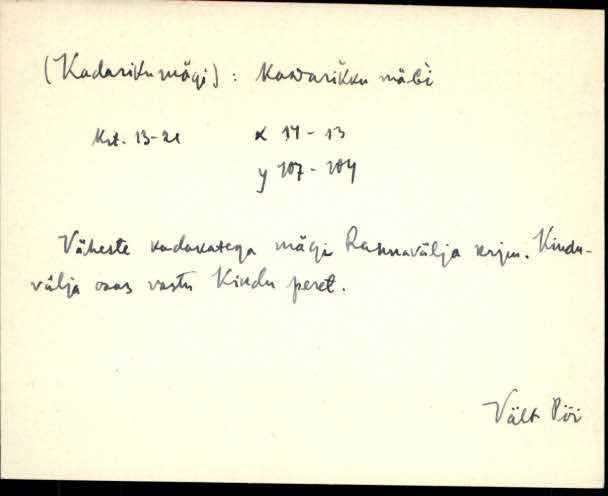 (Kadarikumägi): kadarikku mäbì
Krt. 13-21 x 11-13
y 107-104
Väheste kadakatega mägi Rannavälja serjun. Kindu-
välja osas vastu Kindu peret.
Vält Pöi